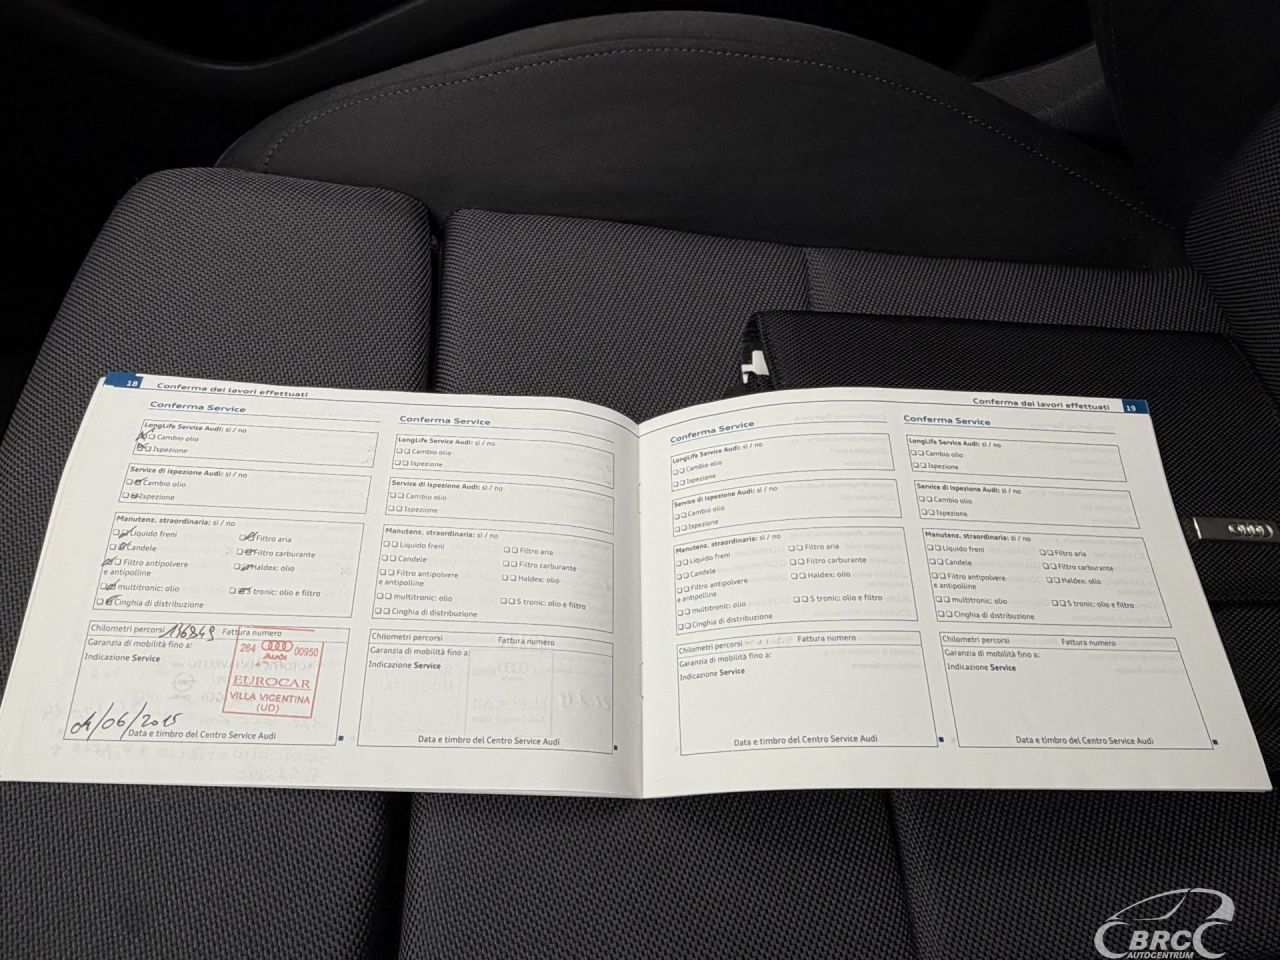 18 Conferma dei lavori effettuati
Conferma Service
LongLife Service Audi: sì / no
Cambio olio
Ispezione
Service di ispezione Audi: sì / no
Cambio olio
Ispezione
Manutenz. straordinaria: sì / no
Liquido freni
Filtro aria
Candele
Filtro carburante
Filtro antipolvere
e antipolline
Haldex: olio
multitronic: olio
S tronic: olio e filtro
Cinghia di distribuzione
Chilometri percorsi 136849 Fattura numero
Garanzia di mobilità fino a:
Indicazione Service
264 Audi 00950
EUROCAR
VILLA VICENTINA
(UD)
04/06/2015
Data e timbro del Centro Service Audi
Conferma Service
LongLife Service Audi: sì / no
Cambio olio
Ispezione
Service di ispezione Audi: sì / no
Cambio olio
Ispezione
Manutenz. straordinaria: sì / no
Liquido freni
Filtro aria
Candele
Filtro carburante
Filtro antipolvere
e antipolline
Haldex: olio
multitronic: olio
S tronic: olio e filtro
Cinghia di distribuzione
Chilometri percorsi Fattura numero
Garanzia di mobilità fino a:
Indicazione Service
Data e timbro del Centro Service Audi
Conferma dei lavori effettuati 19
Conferma Service
LongLife Service Audi: sì / no
Cambio olio
Ispezione
Service di ispezione Audi: sì / no
Cambio olio
Ispezione
Manutenz. straordinaria: sì / no
Liquido freni
Filtro aria
Candele
Filtro carburante
Filtro antipolvere
e antipolline
Haldex: olio
multitronic: olio
S tronic: olio e filtro
Cinghia di distribuzione
Chilometri percorsi Fattura numero
Garanzia di mobilità fino a:
Indicazione Service
Data e timbro del Centro Service Audi
Conferma Service
LongLife Service Audi: sì / no
Cambio olio
Ispezione
Service di ispezione Audi: sì / no
Cambio olio
Ispezione
Manutenz. straordinaria: sì / no
Liquido freni
Filtro aria
Candele
Filtro carburante
Filtro antipolvere
e antipolline
Haldex: olio
multitronic: olio
S tronic: olio e filtro
Cinghia di distribuzione
Chilometri percorsi Fattura numero
Garanzia di mobilità fino a:
Indicazione Service
Data e timbro del Centro Service Audi
BRC
AUTOCENTRUM